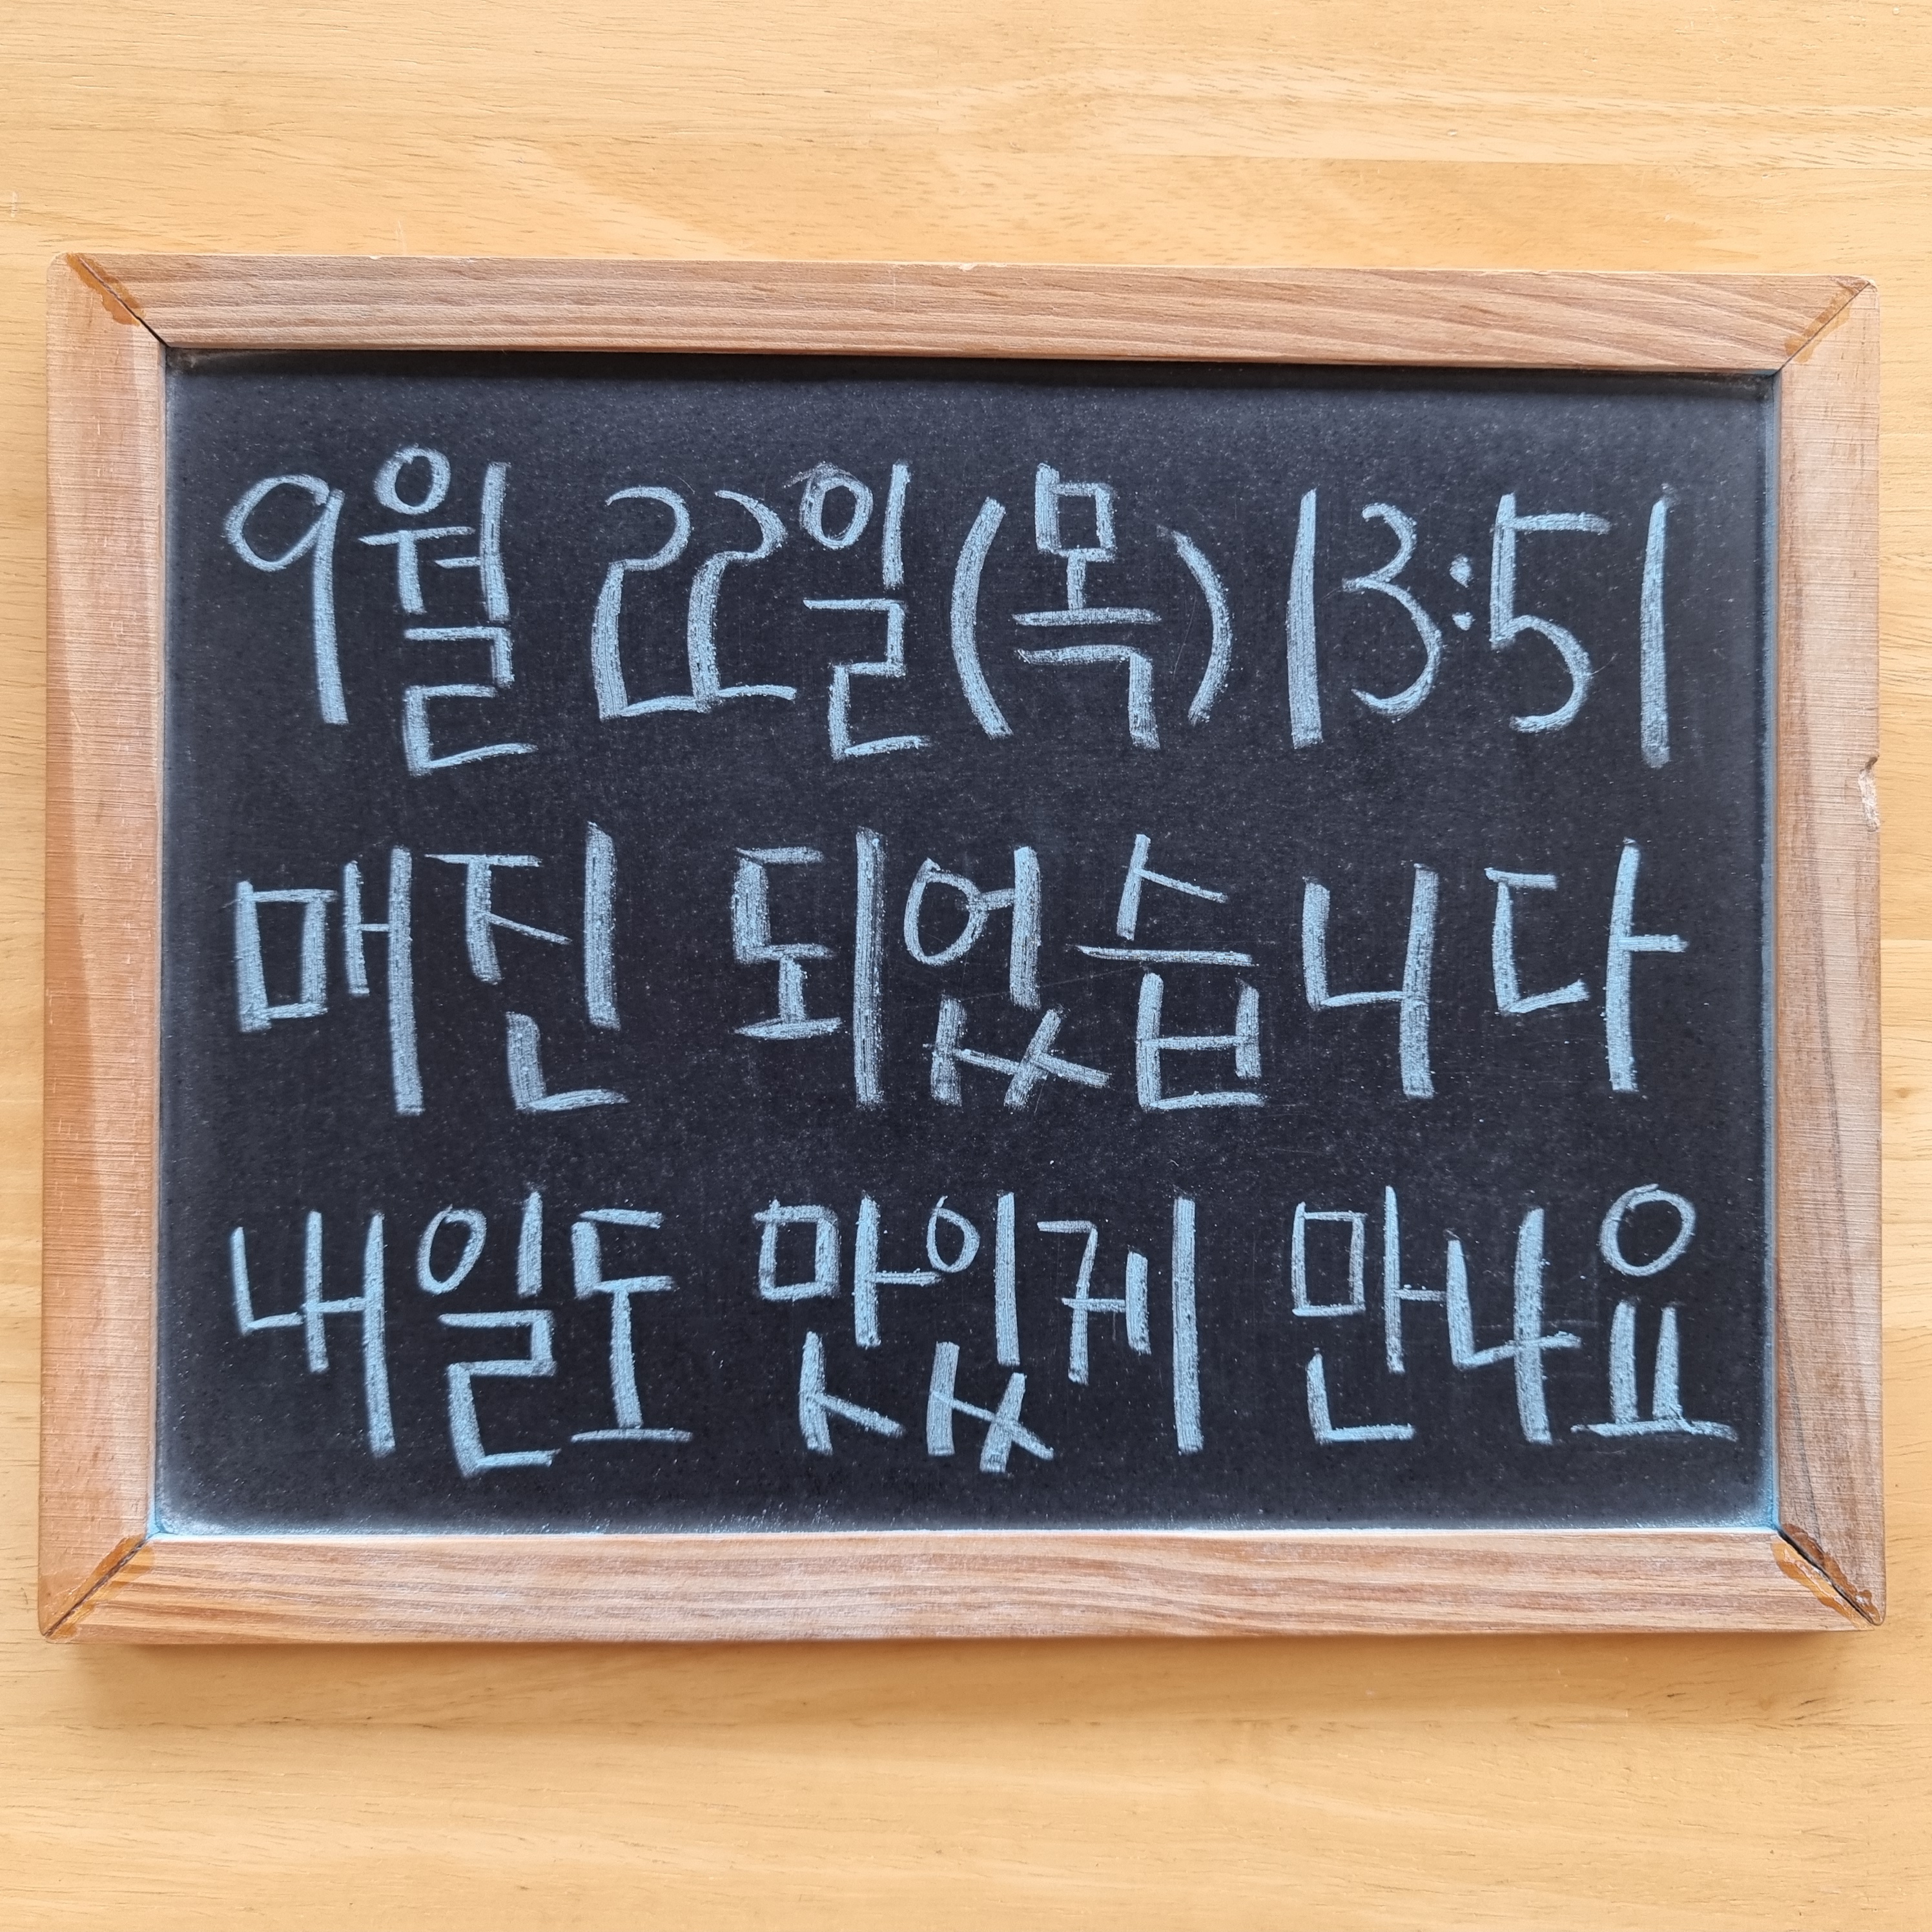 9월 22일(목) 13:51
매진 되었습니다
내일도 맛있게 만나요